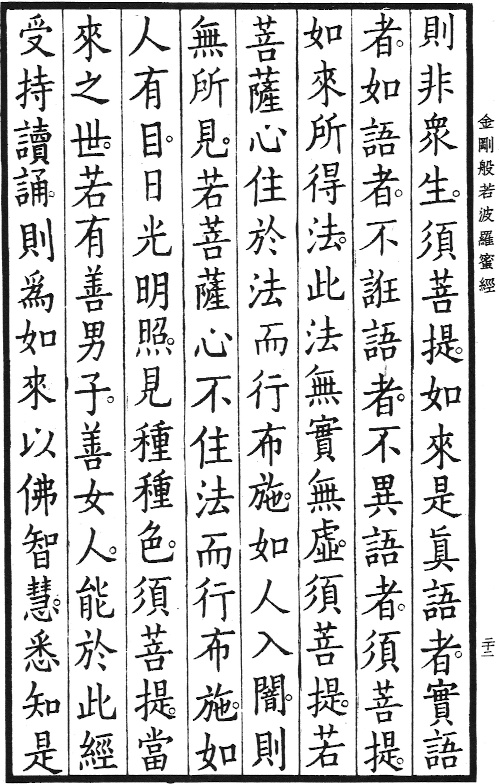 金剛般若波羅蜜經
二十二
則非衆生。須菩提。如來是眞語者。實語
者。如語者。不誑語者。不異語者。須菩提。
如來所得法。此法無實無虛。須菩提。若
菩薩心住於法而行布施。如人入闇。則
無所見。若菩薩心不住法而行布施。如
人有目。日光明照。見種種色。須菩提。當
來之世。若有善男子。善女人。能於此經
受持讀誦。則爲如來以佛智慧。悉知是